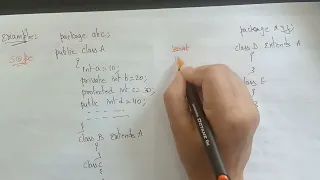 Examples:
package abc;
public class A
{
int a=10;
private int b=20;
protected int c=30;
public int d=40;
class B Extends A
{
}
class C
{
package
class D Extends A
{
}
class E
{
}